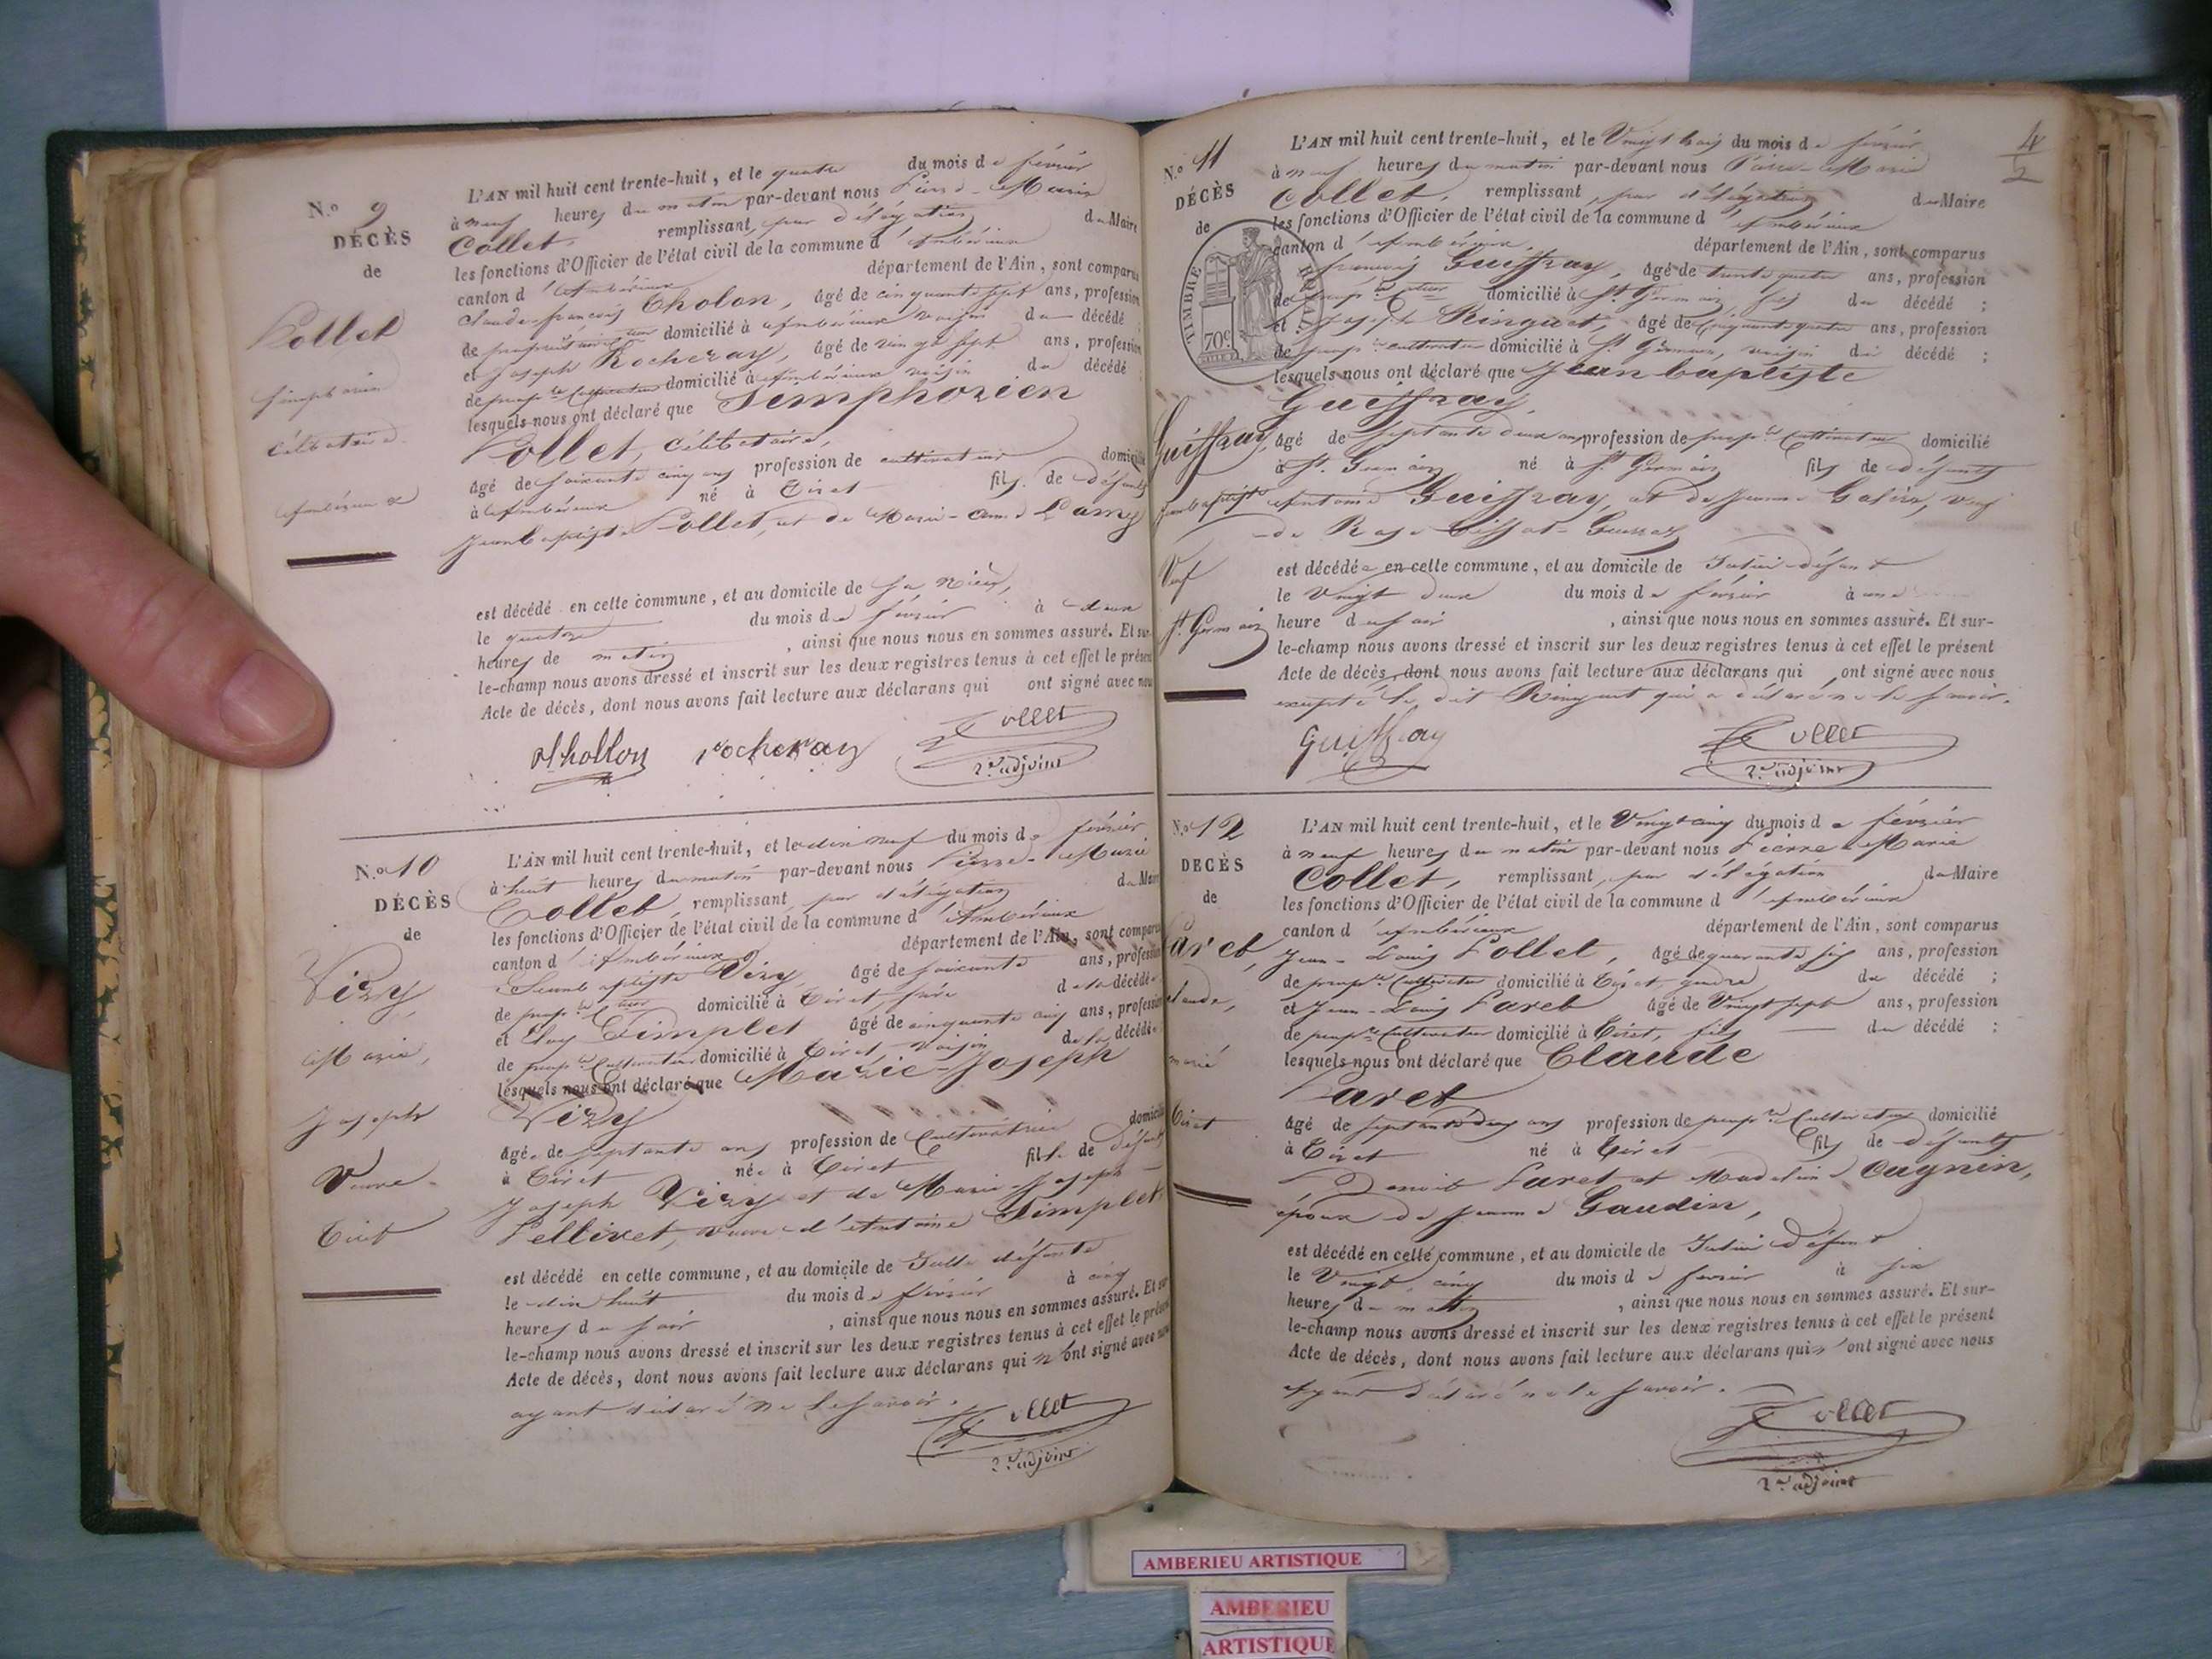 N.° 9
DÉCÈS
de
Pollet
Simphorien
Célibataire
Ambérieux
L'AN mil huit cent trente-huit, et le quatre du mois de février
à neuf heures du matin par-devant nous Pierre-Marie
Collet, remplissant, par délégation du Maire
les fonctions d'Officier de l'état civil de la commune d'Ambérieux
canton d'Ambérieux département de l'Ain, sont comparus
Claude-françois Cholon, âgé de cinquante sept ans, profession
de propriétaire domicilié à Ambérieux voisin du décédé ;
et Joseph Rocheray, âgé de vingt sept ans, profession
de prop.re Cultivateur domicilié à Ambérieux voisin du décédé ;
lesquels nous ont déclaré que Semphorien
Pollet, Célibataire,
âgé de soixante cinq ans profession de cultivateur domicilié
à Ambérieux né à Tiret fils de défunts
Jean Baptiste Pollet, et de Marie-Anne
est décédé en cette commune, et au domicile de sa nièce,
le quatorze du mois de février à deux
heures de matin, ainsi que nous nous en sommes assuré. Et sur-
le-champ nous avons dressé et inscrit sur les deux registres tenus à cet effet le présent
Acte de décès, dont nous avons fait lecture aux déclarans qui ont signé avec nous
Chollon rocheray Collet
2.e adjoint
N.° 10
DÉCÈS
de
Vizy,
Marie,
Joseph
Veuve
Tiret
L'AN mil huit cent trente-huit, et le dix neuf du mois de février
à huit heures du matin par-devant nous Pierre-Marie
Collet, remplissant, par délégation du Maire
les fonctions d'Officier de l'état civil de la commune d'Ambérieux
canton d'Ambérieux département de l'Ain, sont comparus
Jean Baptiste Vizy, âgé de soixante ans, profession
de prop.re domicilié à Tiret, frère de la décédée
et Eloy Simplet âgé de cinquante cinq ans, profession
de prop.re Cultivateur domicilié à Tiret, voisin de la décédée
lesquels nous ont déclaré que Marie-Joseph
Vizy
âgée de septante ans profession de Cultivatrice domiciliée
à Tiret née à Tiret fille de défunts
Joseph Vizy et de Marie-Joseph
Pellivet, veuve d'Antoine Simplet
est décédé en cette commune, et au domicile de ladite défunte
le dix huit du mois de février à cinq
heures du soir, ainsi que nous nous en sommes assuré. Et sur-
le-champ nous avons dressé et inscrit sur les deux registres tenus à cet effet le présent
Acte de décès, dont nous avons fait lecture aux déclarans qui n'ont signé avec nous
ayant déclaré ne le savoir.
Collet
2.e adjoint
4
2
N.° 11
DÉCÈS
de
TIMBRE ROYAL
70 c
Guiffray,
Jean baptiste
Veuf
St. Germain
L'AN mil huit cent trente-huit, et le Vingt trois du mois de février
à neuf heures du matin par-devant nous Pierre-Marie
Collet, remplissant, par délégation du Maire
les fonctions d'Officier de l'état civil de la commune d'Ambérieux
canton d'Ambérieux, département de l'Ain, sont comparus
françois Guiffray, âgé de trente quatre ans, profession
de prop.re domicilié à St. Germain, fils du décédé ;
et Joseph Ringuet, âgé de Cinquante quatre ans, profession
de prop.re cultivateur domicilié à St. Germain, voisin du décédé ;
lesquels nous ont déclaré que Jean baptiste
Guiffray,
âgé de septante deux ans profession de prop.re Cultivateur domicilié
à St. Germain né à St. Germain fils de défunts
Antoine Guiffray, et de Jeanne, veuf
de Rose
est décédé en cette commune, et au domicile de Ludit défunt
le Vingt deux du mois de février à une
heure du soir, ainsi que nous nous en sommes assuré. Et sur-
le-champ nous avons dressé et inscrit sur les deux registres tenus à cet effet le présent
Acte de décès, dont nous avons fait lecture aux déclarans qui ont signé avec nous
excepté le dit Ringuet qui a déclaré ne le savoir.
Guiffray Collet
2.e adjoint
N.° 12
DÉCÈS
de
Paret,
Claude,
marié
Tiret
L'AN mil huit cent trente-huit, et le Vingt cinq du mois de février
à neuf heures du matin par-devant nous Pierre-Marie
Collet, remplissant, par délégation du Maire
les fonctions d'Officier de l'état civil de la commune d'Ambérieux
canton d'Ambérieux département de l'Ain, sont comparus
Jean-Louis Pollet, âgé de quarante six ans, profession
de prop.re Cultivateur domicilié à Tiret, gendre du décédé ;
et Jean-Louis Paret âgé de Vingt sept ans, profession
de prop.re Cultivateur domicilié à Tiret, fils du décédé ;
lesquels nous ont déclaré que Claude
Paret
âgé de septante deux ans profession de prop.re Cultivateur domicilié
à Tiret né à Tiret fils de défunts
Benoit Paret et Madeleine Cagnin,
époux de Jeanne Gaudin,
est décédé en cette commune, et au domicile de Ludit défunt
le Vingt cinq du mois de février à six
heures du matin, ainsi que nous nous en sommes assuré. Et sur-
le-champ nous avons dressé et inscrit sur les deux registres tenus à cet effet le présent
Acte de décès, dont nous avons fait lecture aux déclarans qui n'ont signé avec nous
ayant déclaré ne le savoir.
Collet
2.e adjoint
AMBERIEU ARTISTIQUE
AMBERIEU
ARTISTIQUE